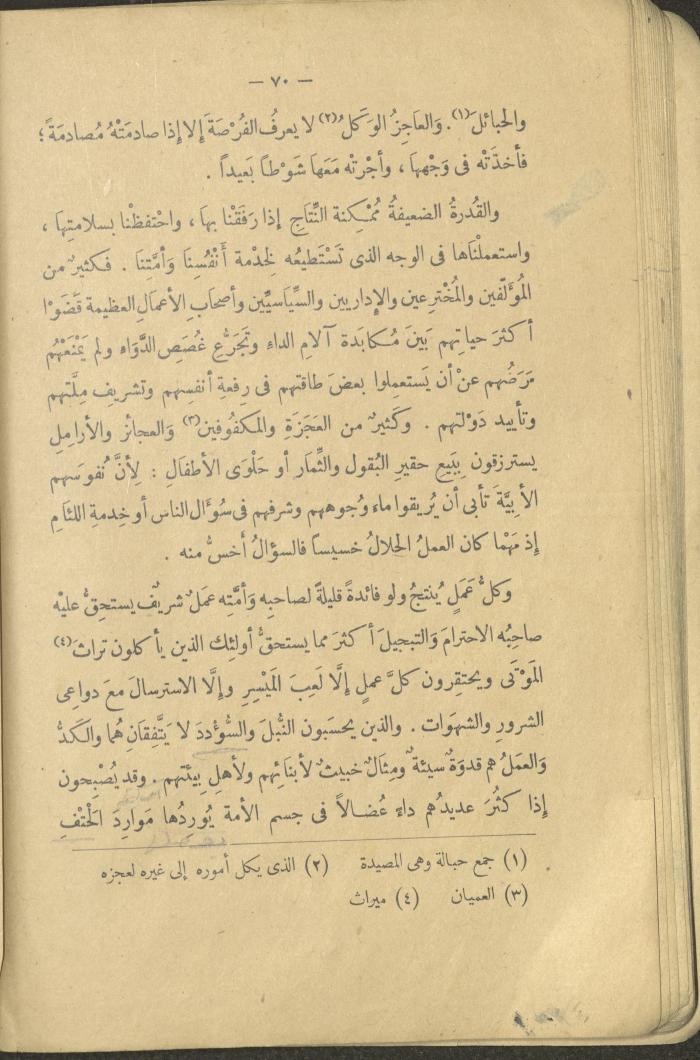 — ٧٠ —
والحبائلَ (١) . وَالعَاجِزُ الوَكَلُ (٢) لا يعرفُ الفُرْصَةَ إلا إذا صادمَتْهُ مُصادمَةً ؛
فأخذَتْه فى وَجْهِهَا ، وأجْرتْه مَعَهَا شَوْطاً بَعيداً .
والقُدرةُ الضعيفةُ مُمْكِنة النِّتَاجِ إذا رَفَقْنا بها ، واحْتفظْنا بسلامتِها ،
واستعملْنَاها فى الوجه الذى تَسْتَطيعُه لِخِدْمة أَنْفُسِنَا وَأمَّتِنَا . فكثيرٌ من
المُؤلّفين والمُخْترِعين والإداريين والسِّيَاسيِّين وأصحابِ الأعمالِ العظيمة قَضَوْا
أكثرَ حياتِهم بَينَ مُكابَدة آلامِ الداء وتَجَرُّعِ غُصَصِ الدَّوَاء ولم يَمْنَعْهُم
مَرَضُهم عنْ أن يَستعمِلوا بعضَ طاقتهم فى رِفعةِ أنفسِهم وتشريفِ مِلَّتهم
وتأييد دَوْلتهم . وكَثيرٌ من العَجَزَةِ والمَكفُوفين (٣) وَالعجائز والأرامِلِ
يسترزقون بِبَيعِ حقيرِ البُقول والثِّمارِ أو حَلْوَى الأطفالِ : لِأَنَّ نُفوسَهم
الأبِيَّةَ تأبى أن يُريقوا ماء وُجوههم وشرفِهم فى سُؤَال الناس أو خِدمةِ اللئامِ
إذ مَهْما كان العملُ الحلالُ خسيساً فالسؤالُ أخسُّ منه .
وكلُّ عَمَلٍ يُنتجُ ولو فائدةً قليلةً لصاحبِه وَأمَّتِه عملٌ شريفٌ يستحقُّ عليْه
صاحِبُه الاحترامَ وَالتبجيلَ أكثرَ مما يستحقُّ أولئِك الذين يأكلون تراثَ (٤)
المَوْتَى ويحتقِرون كلَّ عملٍ إلَّا لَعِبَ المَيْسِرِ وإلَّا الاسترسالَ معَ دواعِى
الشرورِ والشهوَات . والذين يحسَبون النُّبلَ والسُّؤددَ لا يَتَّفِقَانِ هُما والكَدُّ
وَالعمَلُ هم قدوَةٌ سيئةٌ ومِثالٌ خبيثٌ لأبنائِهم ولأهلِ بِيئَتهم . وقد يُصْبِحون
إذا كثُرَ عديدُهم داءً عُضالاً فى جسم الأمة يُورِدُها مَوارِدَ الحَتْفِ
(١) جمع حبالة وهى المصيدة (٢) الذى يكل أموره إلى غيره لعجزه
(٣) العميان (٤) ميراث